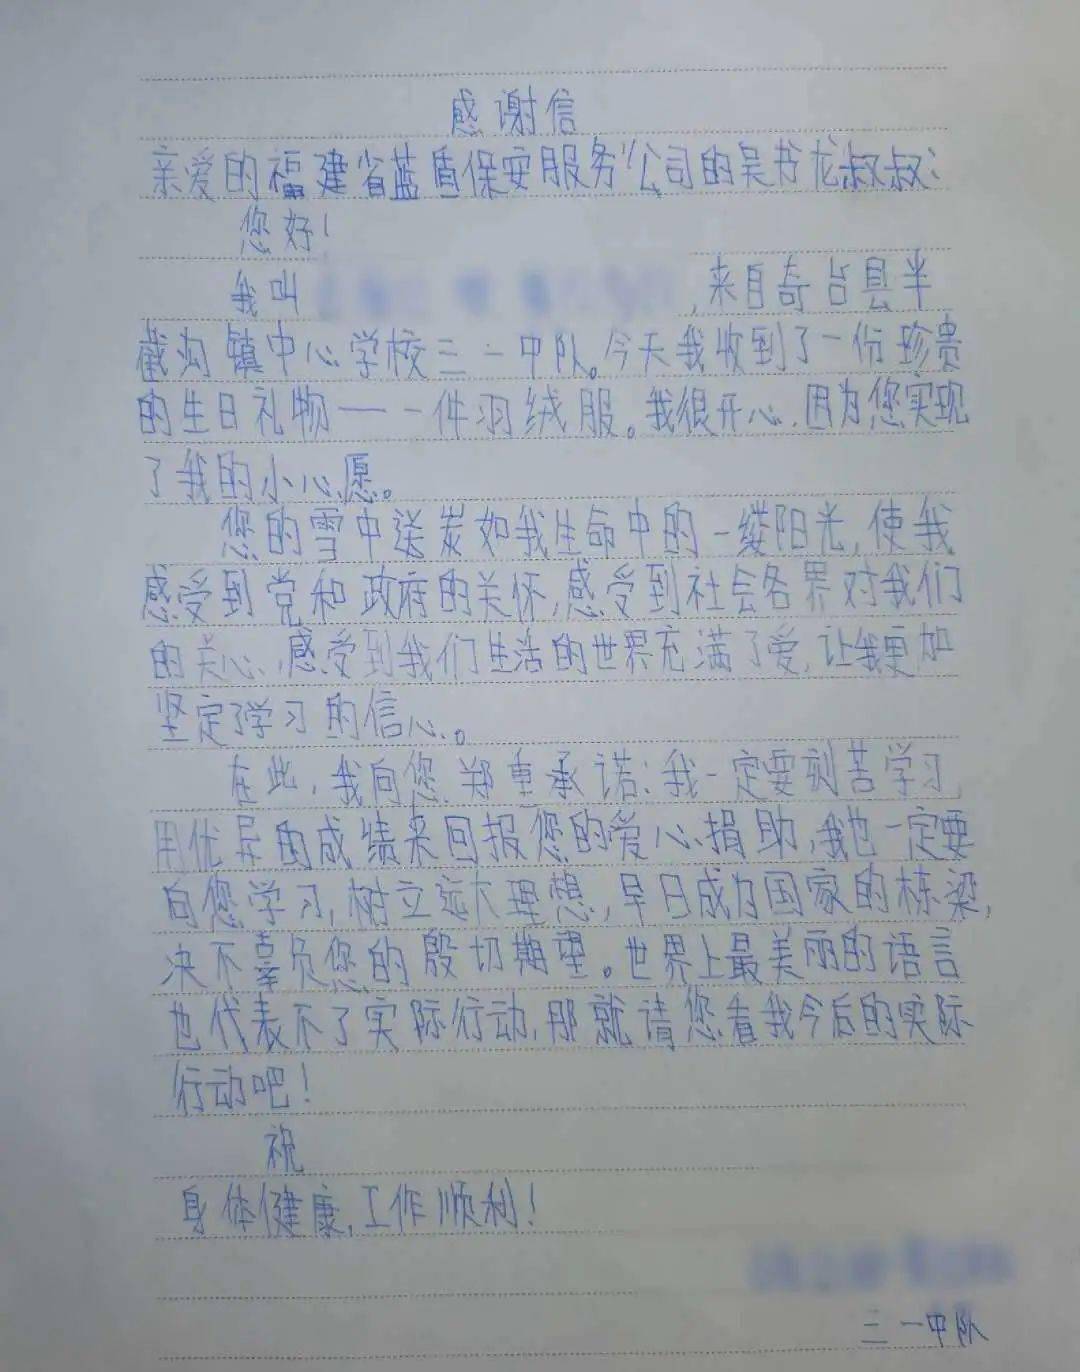 感谢信
亲爱的福建省蓝盾保安服务公司的吴书龙叔叔：
您好！
我叫
，来自奇台县半
截沟镇中心学校三一中队。今天我收到了一份珍贵
的生日礼物——一件羽绒服。我很开心，因为您实现
了我的小心愿。
您的雪中送炭如我生命中的一缕阳光，使我
感受到党和政府的关怀，感受到社会各界对我们
的关心，感受到我们生活的世界充满了爱，让我更加
坚定了学习的信心。
在此，我向您郑重承诺：我一定要刻苦学习
用优异的成绩来回报您的爱心捐助，我也一定要
向您学习，树立远大理想，早日成为国家的栋梁，
决不辜负您的殷切期望。世界上最美丽的语言
也代表不了实际行动，那就请您看我今后的实际
行动吧！
祝
身体健康，工作顺利！
三一中队